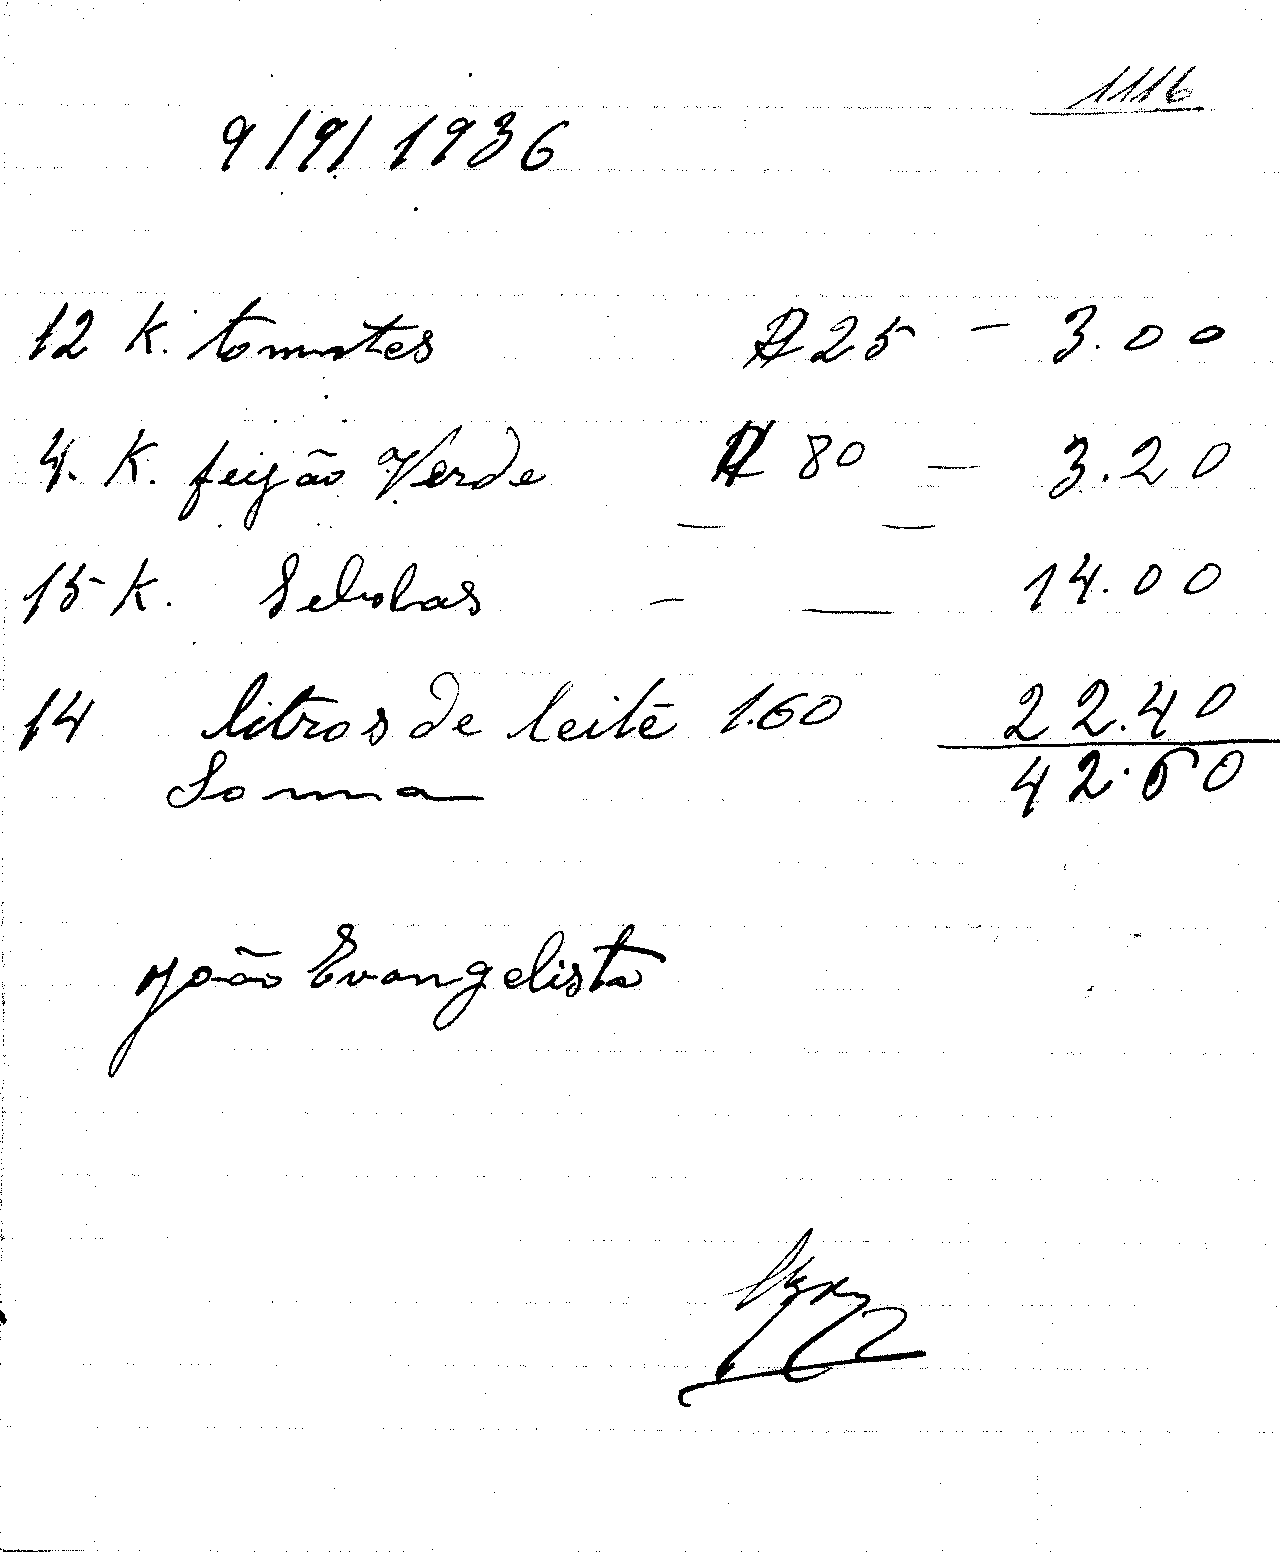 1116
9/9/1936
12 K. tomates $25 - 3.00
4. K. feijão Verde $80 - 3.20
15 K. Sebolas - - 14.00
14 litros de leite 1.60 22.40
Soma 42.60
João Evangelista